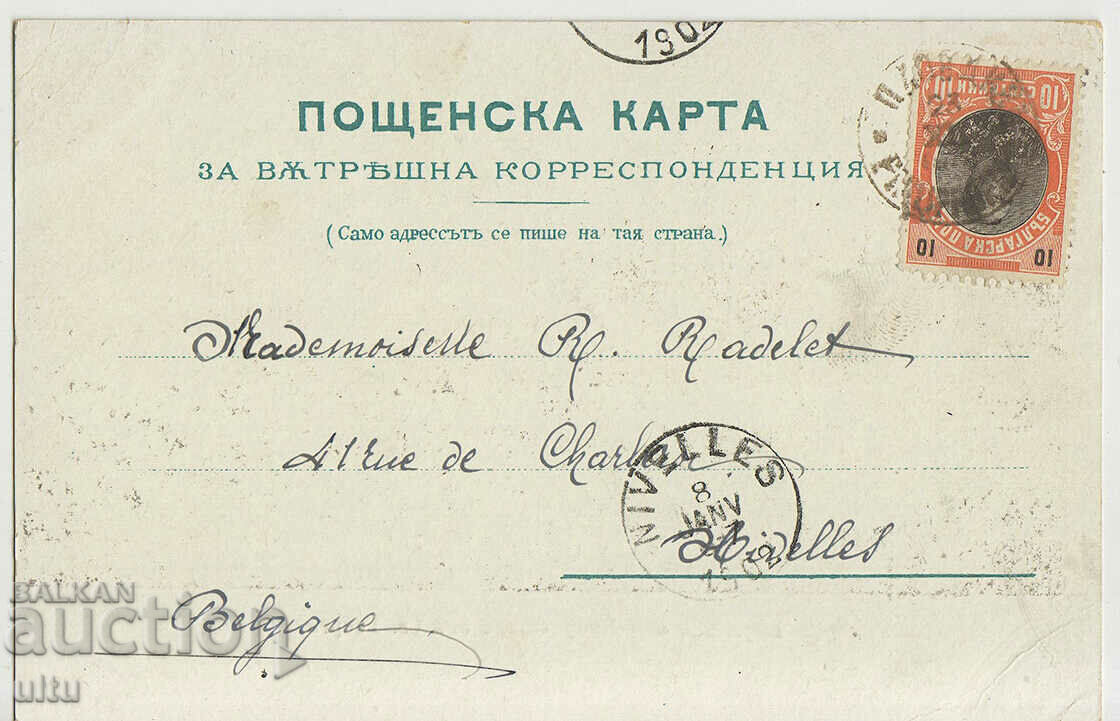 1902
ПОЩЕНСКА КАРТА
ЗА ВѪТРѢШНА КОРРЕСПОНДЕНЦИЯ
(Само адрессътъ се пише на тая страна.)
10 СТОТИНКИ 10
БЪЛГАРСКА ПОЩА
10 10
Mademoiselle R. Radelet
41 rue de
NIVELLES
8
JANV
1902
Nivelles
Belgique
BALKAN
auction
ultu